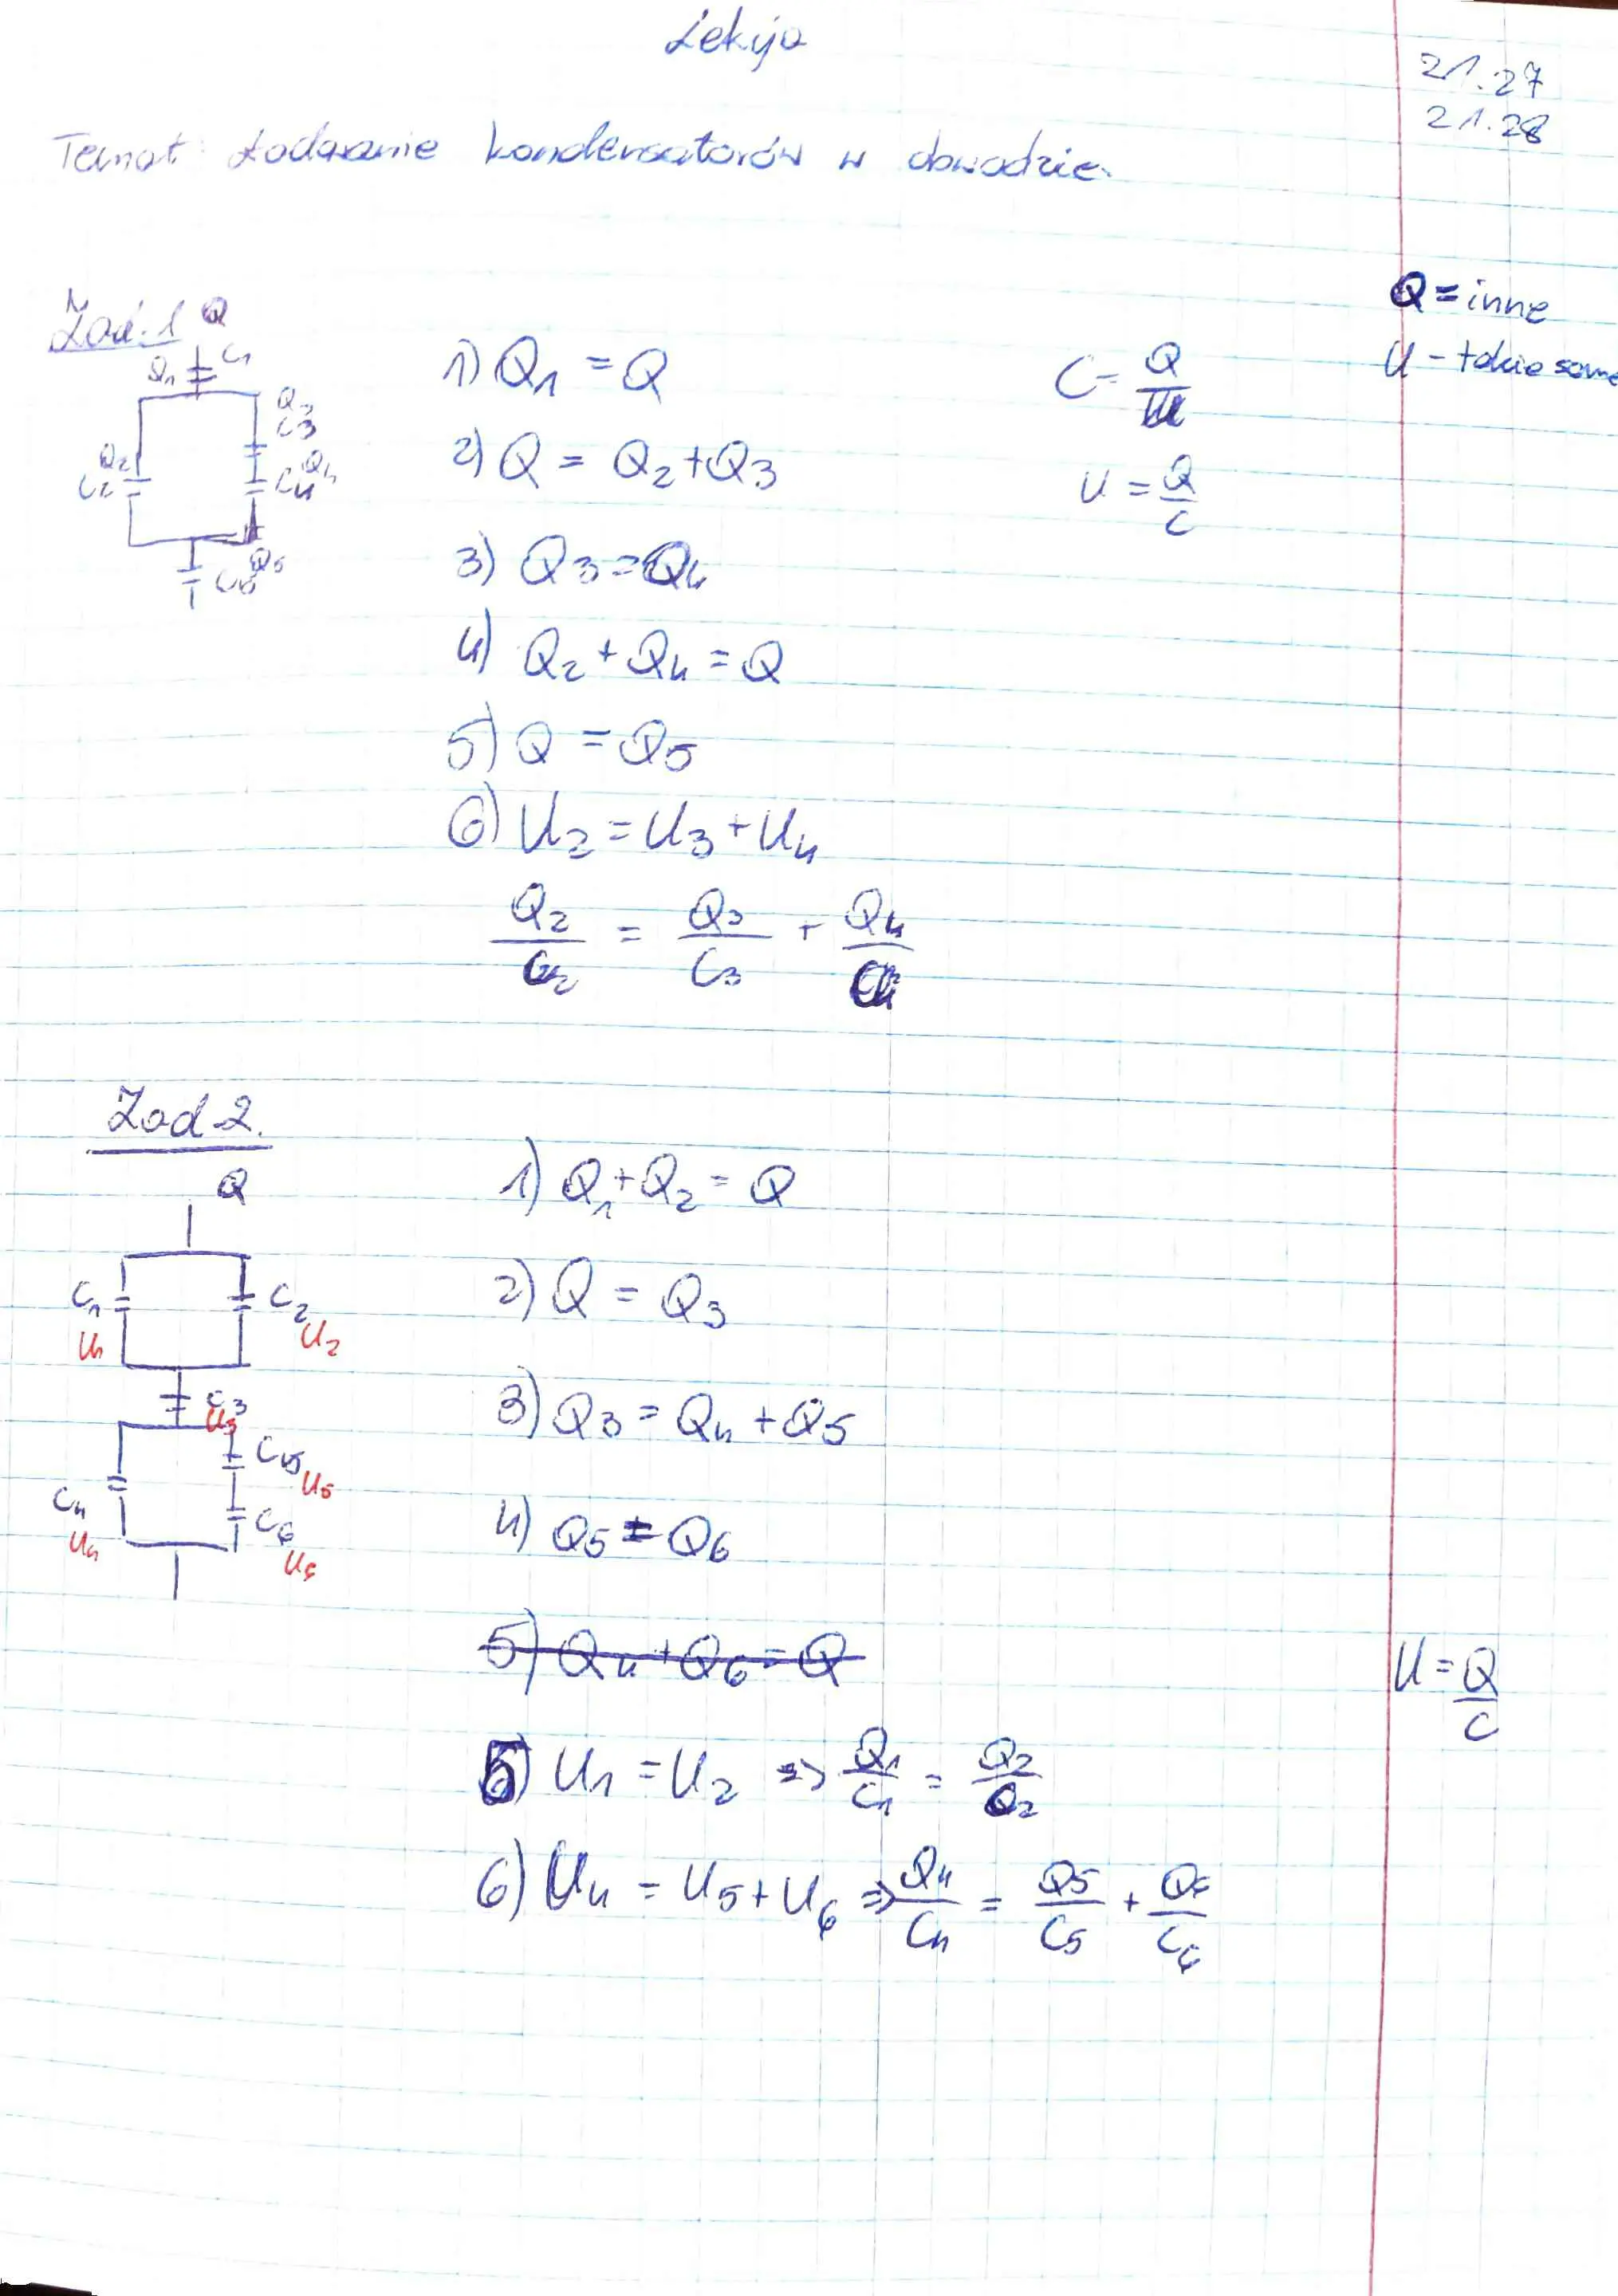 Lekcja
21.27
21.28
Temat: Ładowanie kondensatorów w obwodzie.
Zad. 1 Q
Q = inne
U - takie same
Q1 C1
Q3
C3
Q2
C2
Q4
C4
Q5
C5
1) Q1 = Q
C = Q/U
2) Q = Q2 + Q3
U = Q/C
3) Q3 = Q4
4) Q2 + Q4 = Q
5) Q = Q5
6) U2 = U3 + U4
Q2/C2 = Q3/C3 + Q4/C4
Zad 2.
Q
C1 C2
U1 U2
C3
U3
C5
U5
C4 C6
U4 U6
1) Q1 + Q2 = Q
2) Q = Q3
3) Q3 = Q4 + Q5
4) Q5 = Q6
5) Q4 + Q6 = Q
U = Q/C
5) U1 = U2 => Q1/C1 = Q2/C2
6) U4 = U5 + U6 => Q4/C4 = Q5/C5 + Q6/C6